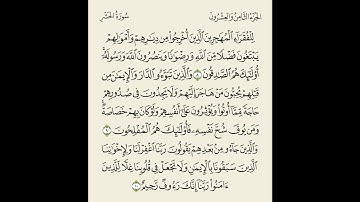 الجزء الثامن والعشرون سورة الحشر
لِلْفُقَرَآءِ ٱلْمُهَٰجِرِينَ ٱلَّذِينَ أُخْرِجُوا۟ مِن دِيَٰرِهِمْ وَأَمْوَٰلِهِمْ
يَبْتَغُونَ فَضْلًا مِّنَ ٱللَّهِ وَرِضْوَٰنًا وَيَنصُرُونَ ٱللَّهَ وَرَسُولَهُۥٓ
أُو۟لَٰٓئِكَ هُمُ ٱلصَّٰدِقُونَ ٨ وَٱلَّذِينَ تَبَوَّءُو ٱلدَّارَ وَٱلْإِيمَٰنَ مِن
قَبْلِهِمْ يُحِبُّونَ مَنْ هَاجَرَ إِلَيْهِمْ وَلَا يَجِدُونَ فِى صُدُورِهِمْ
حَاجَةً مِّمَّآ أُوتُوا۟ وَيُؤْثِرُونَ عَلَىٰٓ أَنفُسِهِمْ وَلَوْ كَانَ بِهِمْ خَصَاصَةٌ
وَمَن يُوقَ شُحَّ نَفْسِهِۦ فَأُو۟لَٰٓئِكَ هُمُ ٱلْمُفْلِحُونَ ٩
وَٱلَّذِينَ جَآءُو مِنۢ بَعْدِهِمْ يَقُولُونَ رَبَّنَا ٱغْفِرْ لَنَا وَلِإِخْوَٰنِنَا
ٱلَّذِينَ سَبَقُونَا بِٱلْإِيمَٰنِ وَلَا تَجْعَلْ فِى قُلُوبِنَا غِلًّا لِّلَّذِينَ
ءَامَنُوا۟ رَبَّنَآ إِنَّكَ رَءُوفٌ رَّحِيمٌ ١٠